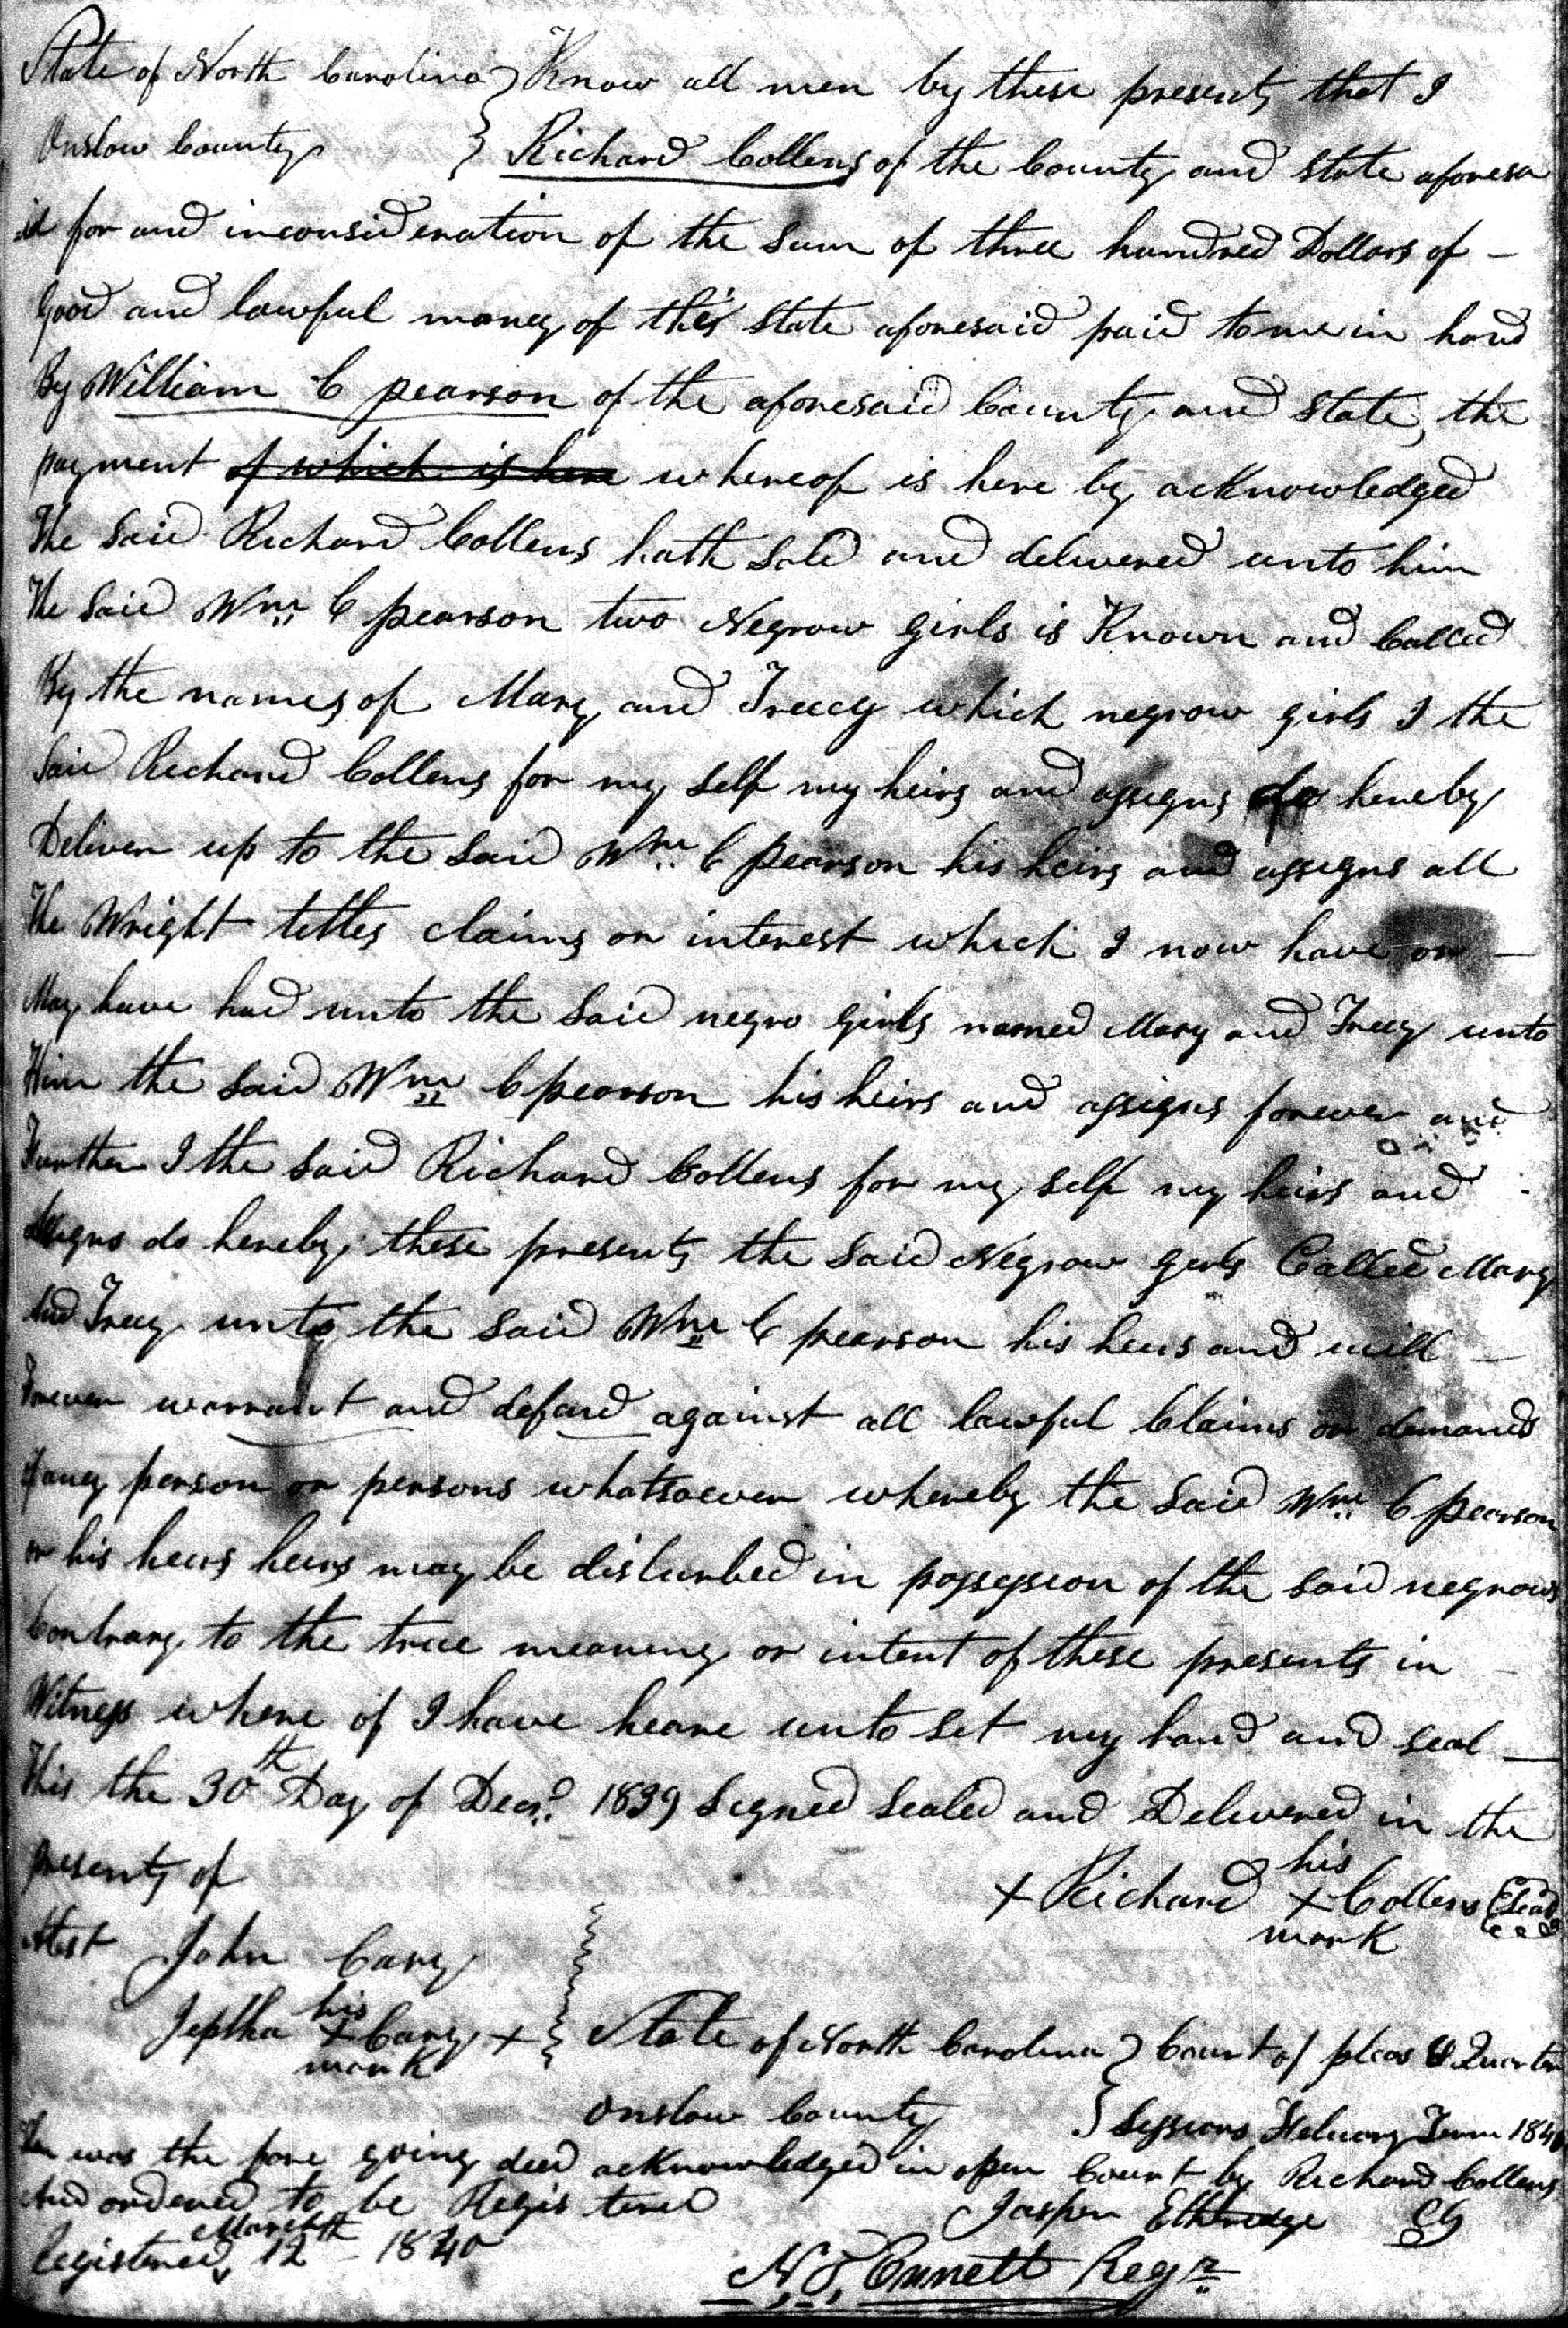 State of North Carolina } Know all men by these presents that I
Onslow County } Richard Collens of the County and state aforesa
id for and inconsideration of the sum of three hundred Dollars of —
Good and lawful money of this State aforesaid paid to me in hand
By William C pearson of the aforesaid County and state, the
payment of which is here whereof is here by acknowledged
The Said Richard Collens hath Sold and delivered unto him
The Said Wm C pearson two Negrow girls is Known and Called
By the names of Mary and Treecy which negrow girls I the
Said Richard Collens for my self my heirs and assigns do hereby
Deliver up to the Said Wm C pearson his heirs and assigns all
The Wright tittles claims or interest which I now have or —
May have had unto the Said negro girls named Mary and Treecy unto
Him the Said Wm C pearson his heirs and assigns forever and
Further I the Said Richard Collens for my self my heirs and
Assigns do hereby these presents the Said Negrow girls Called Mary
And Treecy unto the Said Wm C pearson his heirs and will —
Forever warrant and defend against all lawful Claims or demands
of aney person or persons whatsoever whereby the Said Wm C pearson
or his heirs heirs may be disturbed in possession of the said negrows
Contrary to the true meaning or intent of these presents in —
Witness where of I have heare unto set my hand and seal —
This the 30th Day of Decr. 1839 Signed Sealed and Delivered in the
presents of
his
+ Richard + Collens (Seal)
mark
Attest John Cary
his
Jeptha + Cary +
mark
State of North Carolina } Court of pleas & Quarter
Onslow County } Sessions Febuary Term 1840
Then was the fore going deed acknowledged in open Court by Richard Collens
And ordered to be Registered Jasper Ethridge Clk
Registered March 12th 1840
N. Ennett Regr